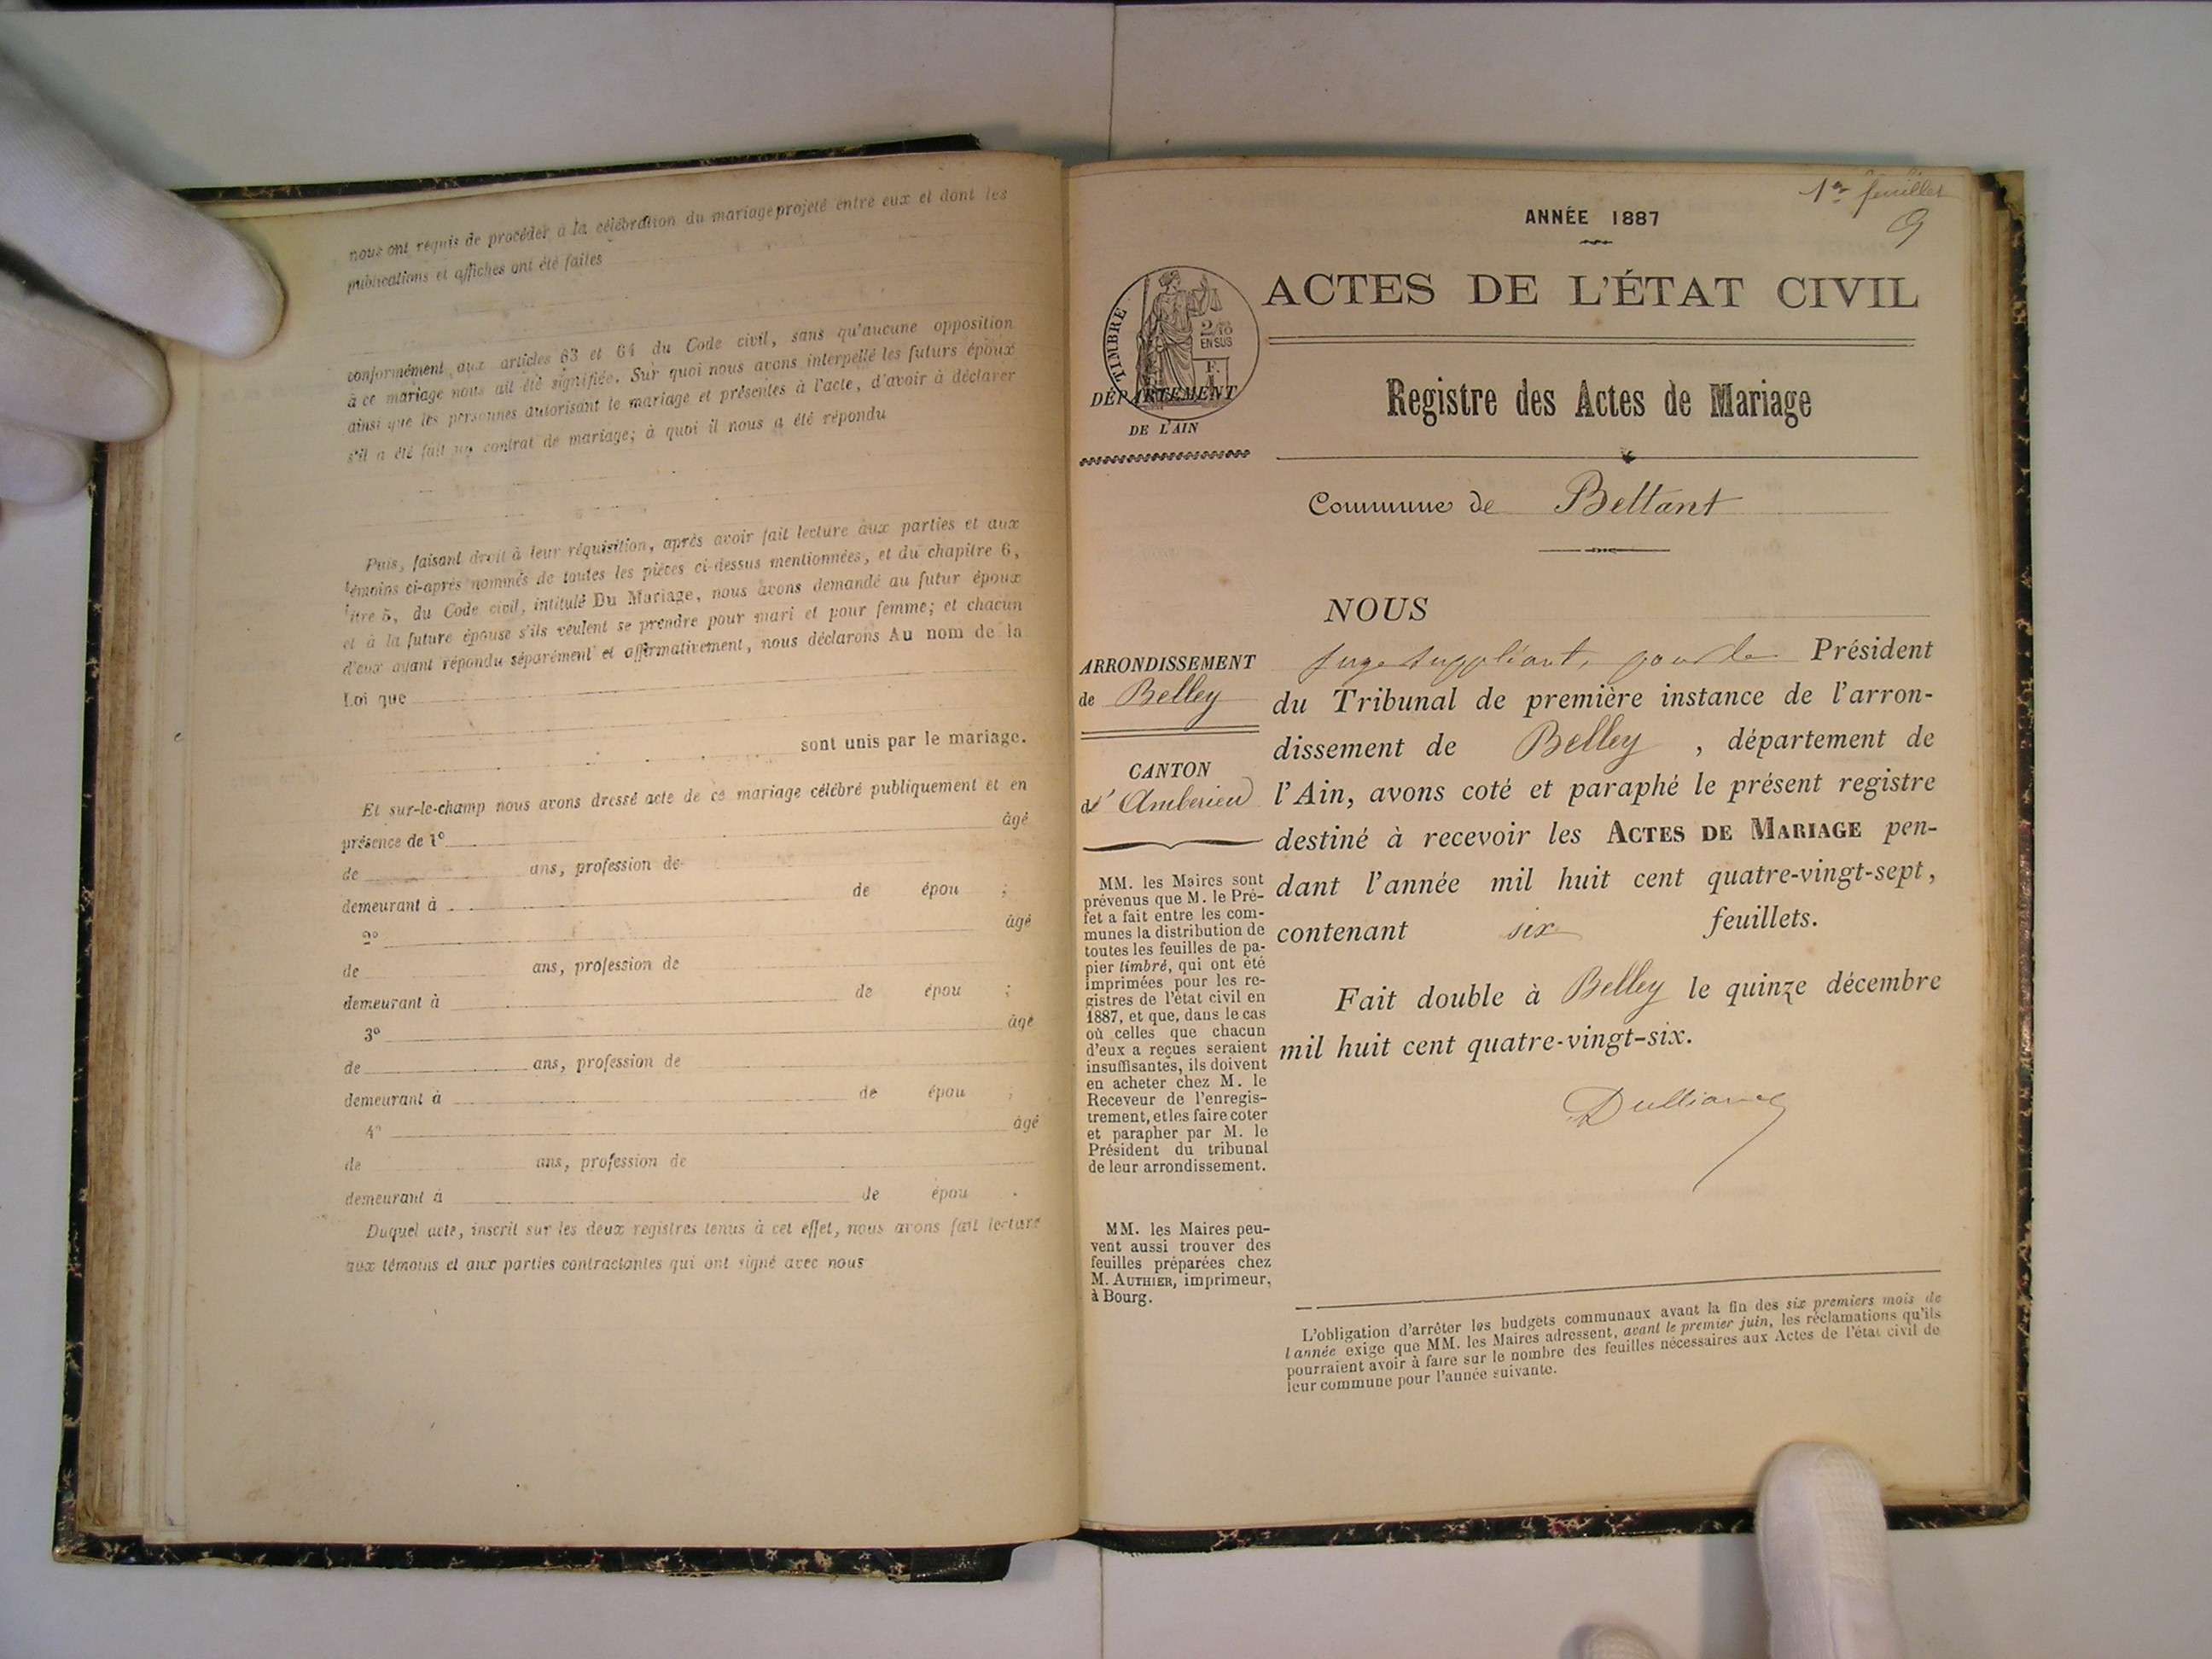 nous ont requis de procéder à la célébration du mariage projeté entre eux et dont les
publications et affiches ont été faites
conformément aux articles 63 et 64 du Code civil, sans qu'aucune opposition
à ce mariage nous ait été signifiée. Sur quoi nous avons interpellé les futurs époux
ainsi que les personnes autorisant le mariage et présentes à l'acte, d'avoir à déclarer
s'il a été fait un contrat de mariage; à quoi il nous a été répondu
Puis, faisant droit à leur réquisition, après avoir fait lecture aux parties et aux
témoins ci-après nommés de toutes les pièces ci-dessus mentionnées, et du chapitre 6,
titre 5, du Code civil, intitulé Du Mariage, nous avons demandé au futur époux
et à la future épouse s'ils veulent se prendre pour mari et pour femme; et chacun
d'eux ayant répondu séparément et affirmativement, nous déclarons Au nom de la
Loi que
sont unis par le mariage.
Et sur-le-champ nous avons dressé acte de ce mariage célébré publiquement et en
présence de 1º âgé
de ans, profession de
demeurant à de épou ;
2º âgé
de ans, profession de
demeurant à de épou ;
3º âgé
de ans, profession de
demeurant à de épou ;
4º âgé
de ans, profession de
demeurant à de épou .
Duquel acte, inscrit sur les deux registres tenus à cet effet, nous avons fait lecture
aux témoins et aux parties contractantes qui ont signé avec nous
1er feuillet
9
ANNÉE 1887
ACTES DE L'ÉTAT CIVIL
TIMBRE
2/10
EN SUS
F.
DÉPARTEMENT
DE L'AIN
Registre des Actes de Mariage
Commune de Bettant
NOUS
juge suppléant, pour le Président
du Tribunal de première instance de l'arron-
dissement de Belley , département de
l'Ain, avons coté et paraphé le présent registre
destiné à recevoir les ACTES DE MARIAGE pen-
dant l'année mil huit cent quatre-vingt-sept,
contenant six feuillets.
Fait double à Belley le quinze décembre
mil huit cent quatre-vingt-six.
ARRONDISSEMENT
de Belley
CANTON
d' Ambérieu
MM. les Maires sont
prévenus que M. le Pré-
fet a fait entre les com-
munes la distribution de
toutes les feuilles de pa-
pier timbré, qui ont été
imprimées pour les re-
gistres de l'état civil en
1887, et que, dans le cas
où celles que chacun
d'eux a reçues seraient
insuffisantes, ils doivent
en acheter chez M. le
Receveur de l'enregis-
trement, et les faire coter
et parapher par M. le
Président du tribunal
de leur arrondissement.
MM. les Maires peu-
vent aussi trouver des
feuilles préparées chez
M. AUTHIER, imprimeur,
à Bourg.
L'obligation d'arrêter les budgets communaux avant la fin des six premiers mois de
l'année exige que MM. les Maires adressent, avant le premier juin, les réclamations qu'ils
pourraient avoir à faire sur le nombre des feuilles nécessaires aux Actes de l'état civil de
leur commune pour l'année suivante.